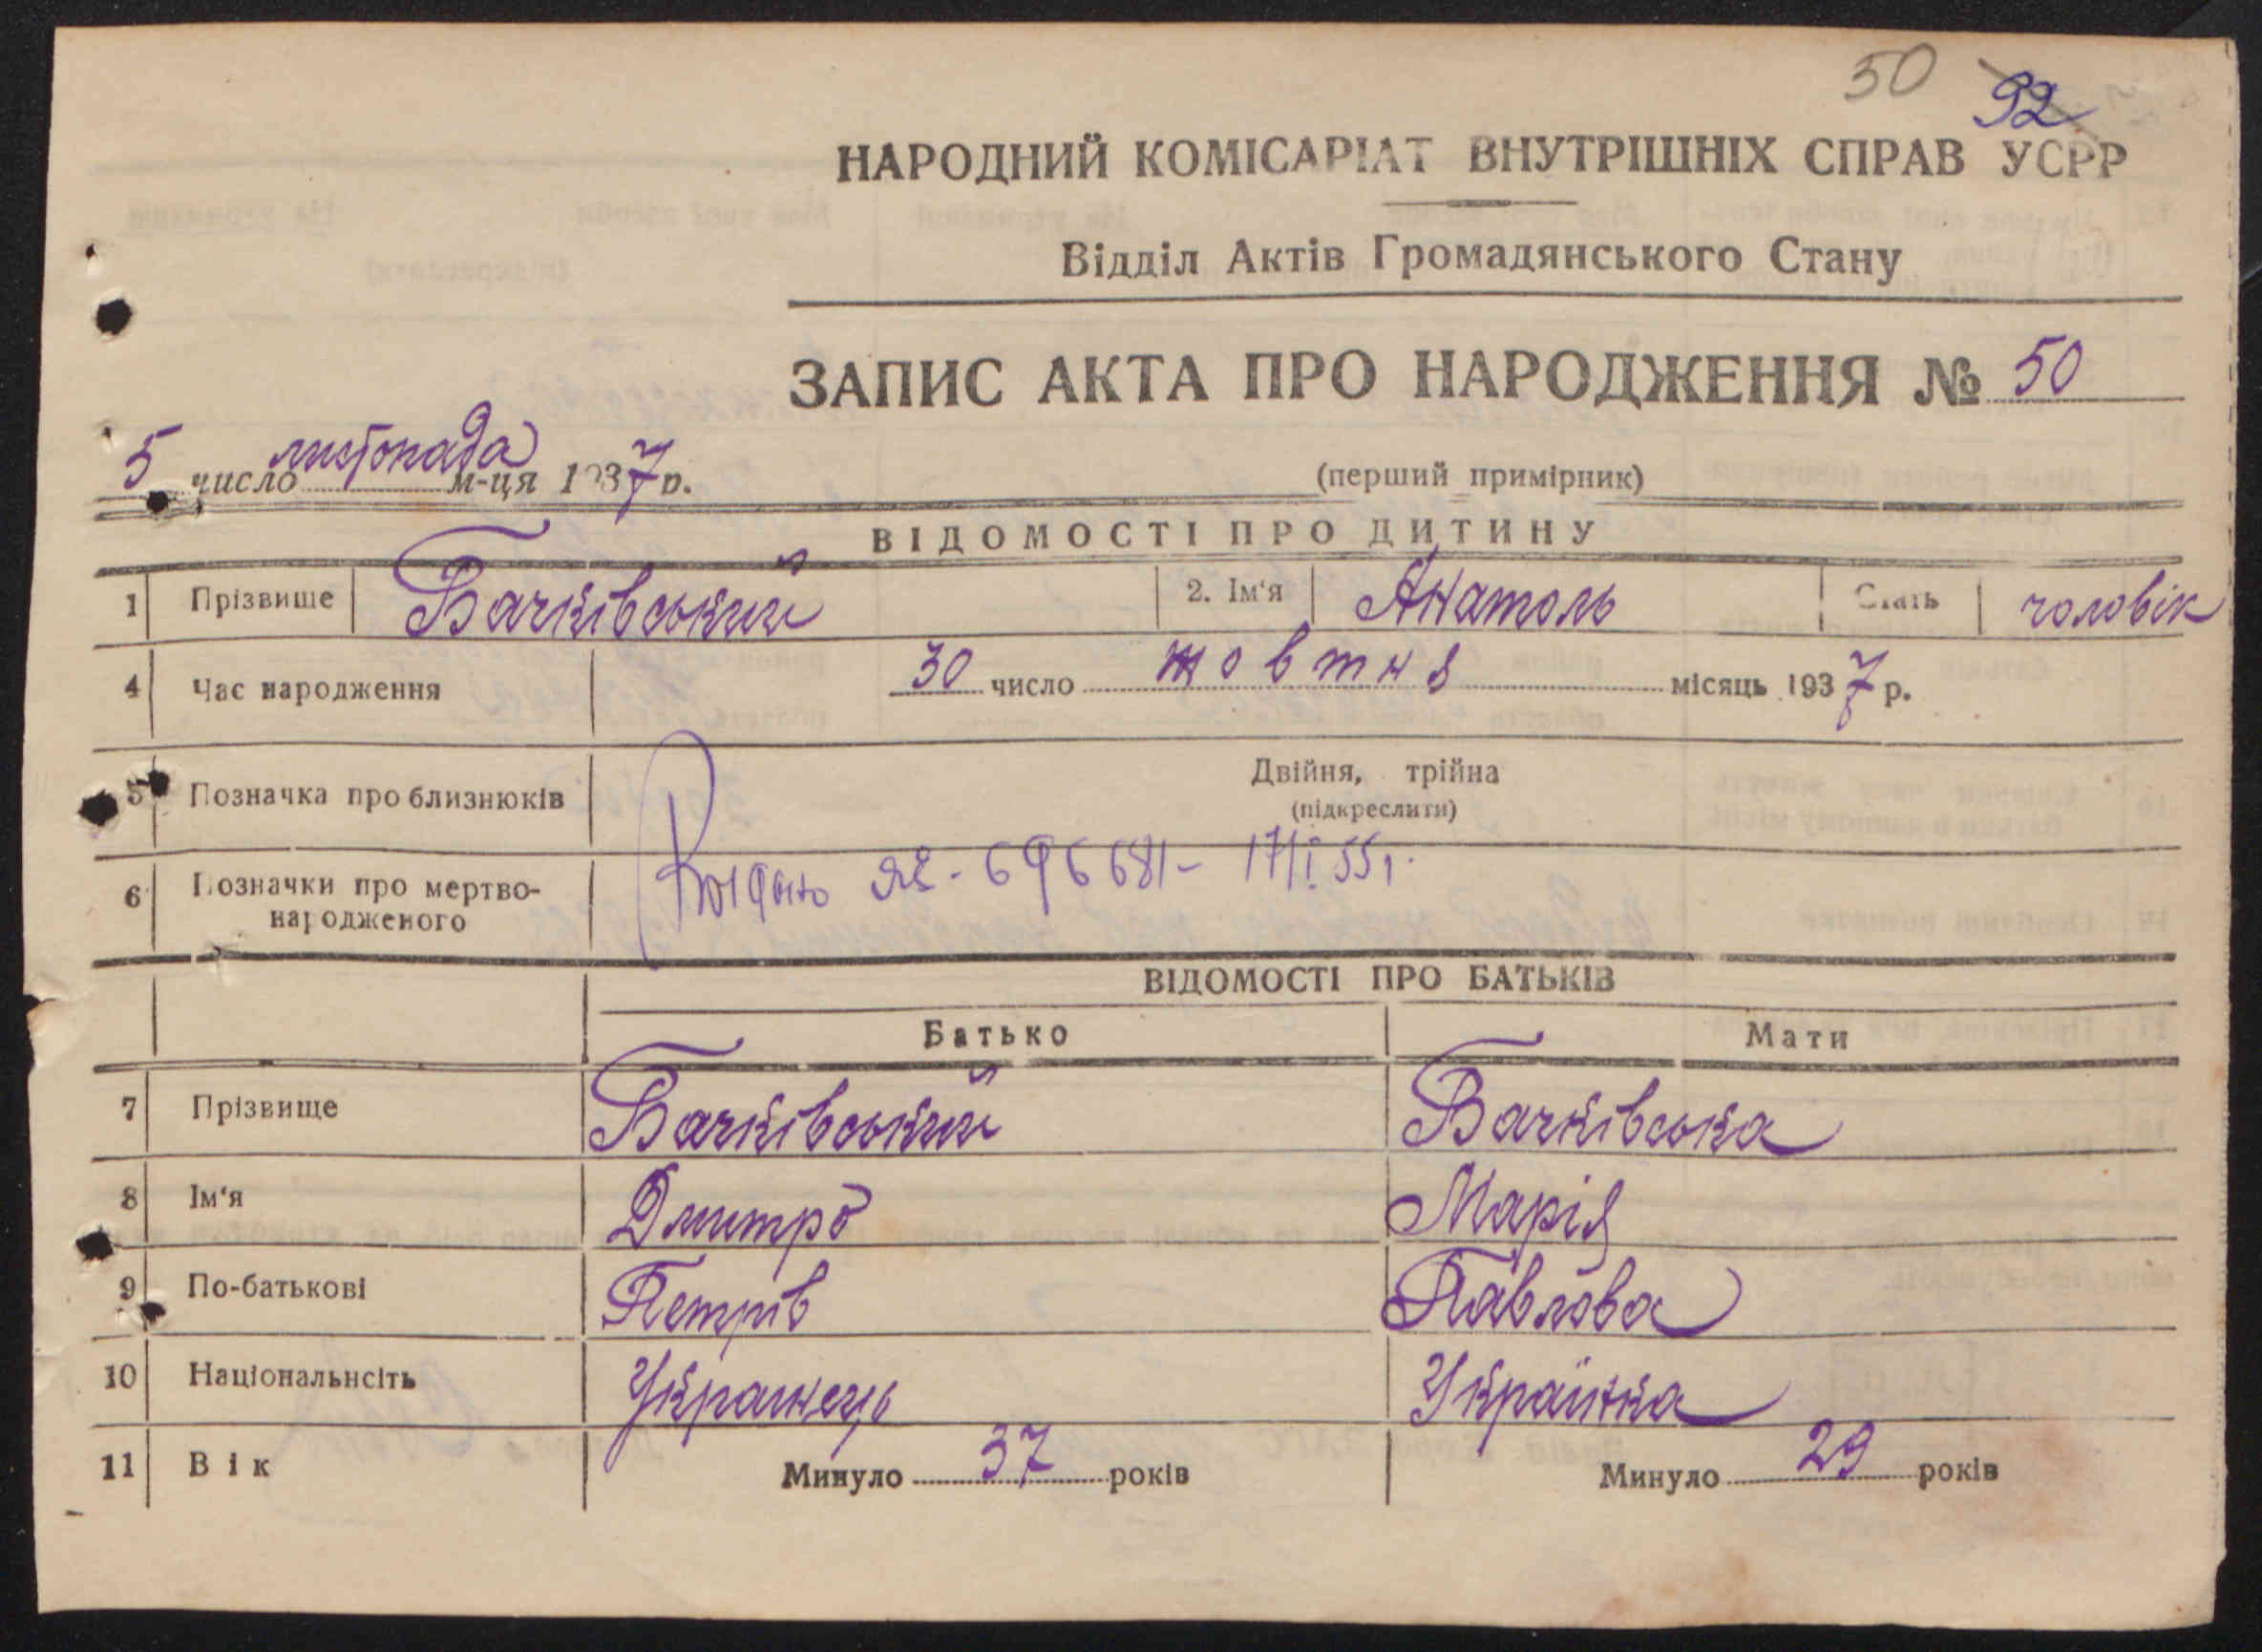 50 92
НАРОДНИЙ КОМІСАРІАТ ВНУТРІШНІХ СПРАВ УСРР
Відділ Актів Громадянського Стану
ЗАПИС АКТА ПРО НАРОДЖЕННЯ № 50
5 число листопада м-ця 1937 р.
(перший примірник)
ВІДОМОСТІ ПРО ДИТИНУ
1 Прізвище Бачківський 2. Ім'я Анатоль Стать чоловік
4 Час народження 30 число жовтня місяць 1937 р.
5 Позначка про близнюків Двійня, трійна
(підкреслити)
6 Позначки про мертво-
народженого
696681- 17/I 55г.
ВІДОМОСТІ ПРО БАТЬКІВ
Батько Мати
7 Прізвище Бачківський Бачківська
8 Ім'я Дмитро Марія
9 По-батькові Петрів Павлова
10 Національнсіть Украинець Українка
11 Вік Минуло 37 років Минуло 29 років